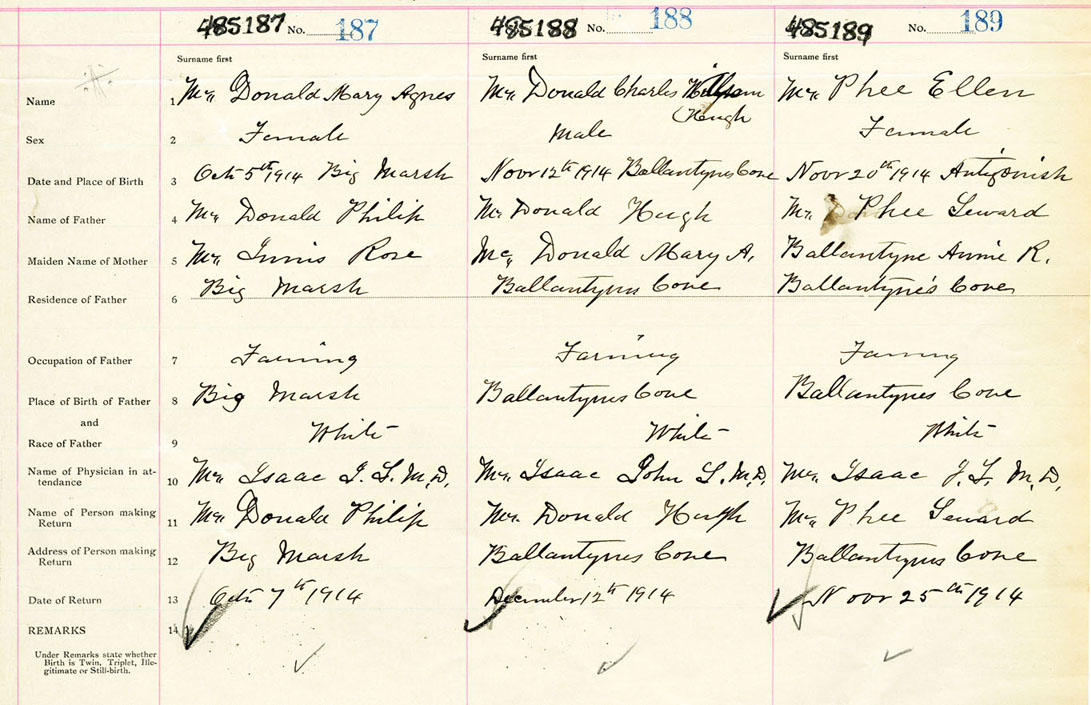 485187 No. 187 485188 No. 188 485189 No. 189
Surname first Surname first Surname first
Name 1 Mc Donald Mary Agnes Mc Donald Charles Mc Phee Ellen
Hugh
Sex 2 Female Male Female
Date and Place of Birth 3 Oct 5th 1914 Big Marsh Novr 12th 1914 Ballantynes Cove Novr 20th 1914 Antigonish
Name of Father 4 Mc Donald Philip Mc Donald Hugh Mc Phee Seward
Maiden Name of Mother 5 Mc Innis Rose Mc Donald Mary A. Ballantyne Annie R.
Residence of Father 6 Big Marsh Ballantynes Cove Ballantyne's Cove
Occupation of Father 7 Farming Farming Farming
Place of Birth of Father 8 Big Marsh Ballantynes Cove Ballantynes Cove
and
Race of Father 9 White White White
Name of Physician in at-
tendance 10 Mc Isaac J. L. M.D. Mc Isaac John L. M.D. Mc Isaac J. L. M.D.
Name of Person making
Return 11 Mc Donald Philip Mc Donald Hugh Mc Phee Seward
Address of Person making
Return 12 Big Marsh Ballantynes Cove Ballantynes Cove
Date of Return 13 Oct 7th 1914 December 12th 1914 Novr 25th 1914
REMARKS 14
Under Remarks state whether
Birth is Twin, Triplet, Ille-
gitimate or Still-birth.